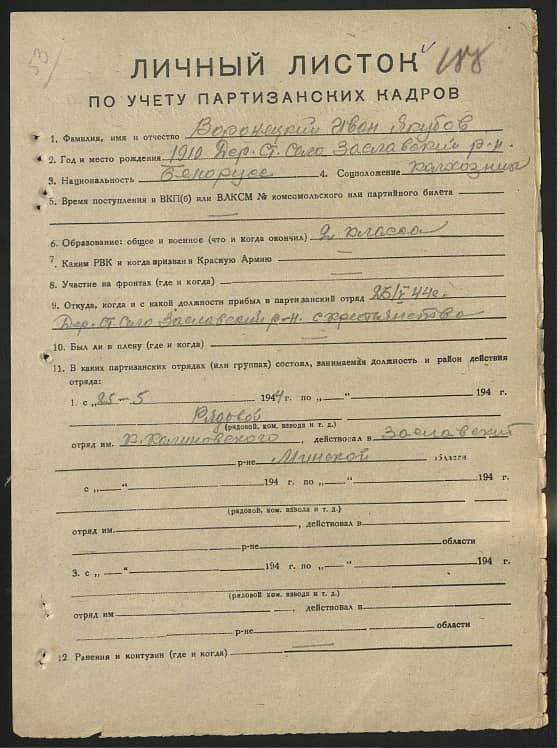 53/
188
ЛИЧНЫЙ ЛИСТОК
ПО УЧЕТУ ПАРТИЗАНСКИХ КАДРОВ
1. Фамилия, имя и отчество Воронецкий Иван Якубов
2. Год и место рождения 1910 Дер. Ст. Село Заславский р-н.
3. Национальность Белорусс 4. Соцположение колхозниц
5. Время поступления и ВКП(б) или ВЛКСМ № комсомольского или партийного билета
—
6. Образование: общее и военное (что и когда окончил) 2 класса
7. Каким РВК и когда призван в Красную Армию —
8. Участие на фронтах (где и когда) —
9. Откуда, когда и с какой должности прибыл в партизанский отряд 25/V 44г.
Дер. Ст. Село Заславский р-н. с крестьянства
10. Был ли в плену (где и когда) —
11. В каких партизанских отрядах (или группах) состоял, занимаемая должность и район действия
отряда:
1. с „25-5 1944 г. по „—“ 194 г.
Рядовой
(рядовой, ком. взвода и т. д.)
отряд им. К. Калиновского, действовал в Заславский
р-не Минской области
с „—“ 194 г. по „—“ 194 г.
(рядовой, ком. взвода и т. д.)
отряд им. , действовал в
р-не области
3. с „—“ 194 г. по „—“ 194 г.
(рядовой, ком. взвода и т. д.)
отряд им , действовал в
р-не области
12. Ранения и контузии (где и когда) —